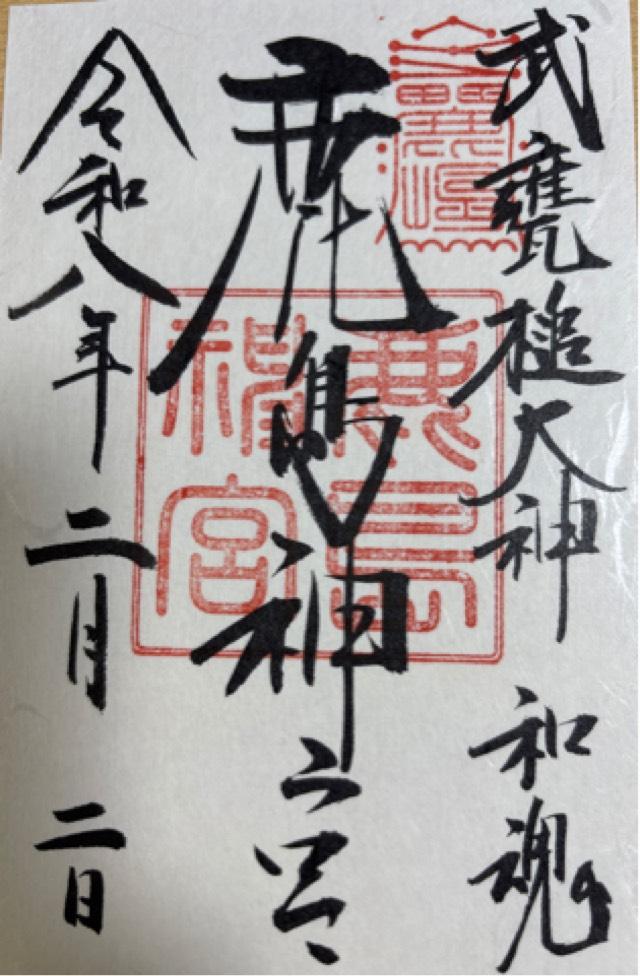 武甕槌大神 和魂
鹿島神宮
鹿島
神宮
令和八年二月二日